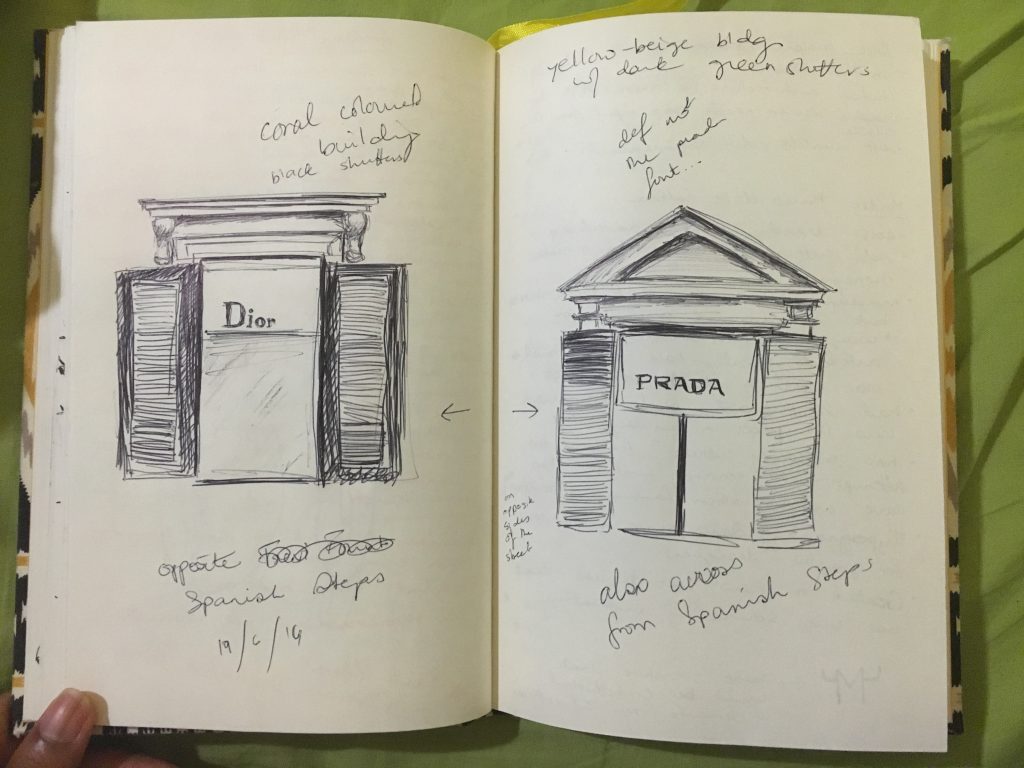 coral coloured
building
black shutters
Dior
opposite
Spanish Steps
19/6/14
yellow-beige bldg
w/ dark green shutters
def not
the prada
font...
PRADA
on
opposite
sides
of the
street
also across
from Spanish Steps